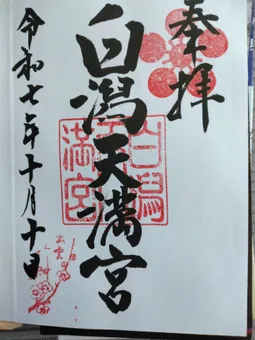 奉拝
白潟天満宮
令和七年十月十日
白潟
天
満宮
出雲